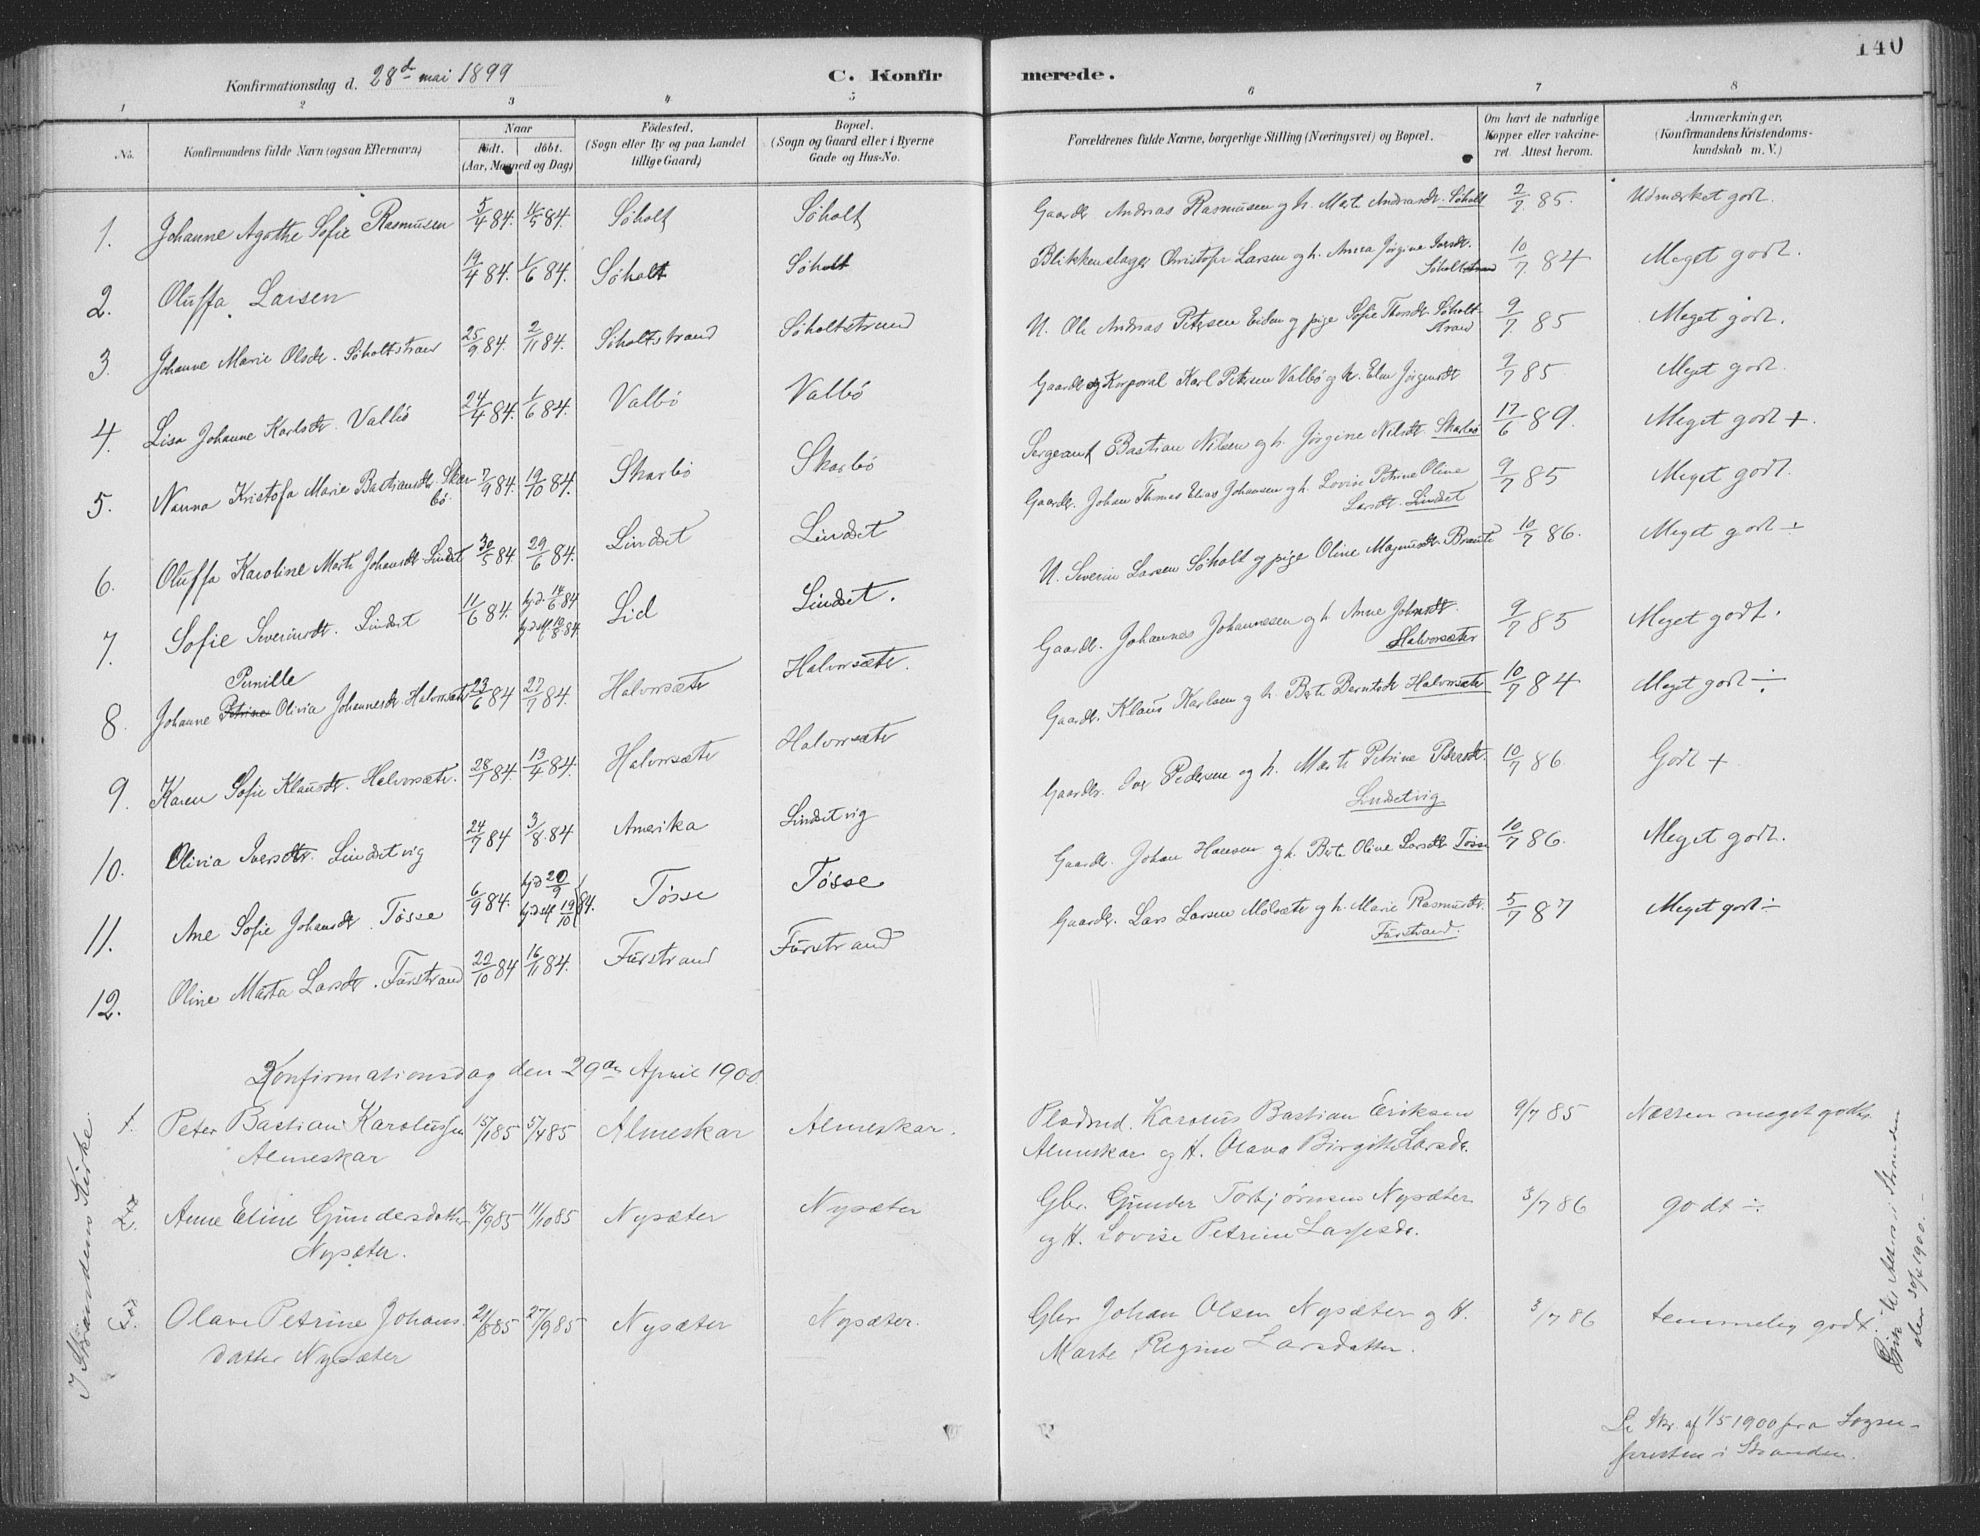 140
Konfirmationsdag d. 28de mai 1899
C. Konfirmerede.
1 2 3 4 5 6 7 8
No.
Konfirmandens fulde Navn (ogsaa Efternavn)
Naar
født. døbt.
(Aar, Maaned og Dag)
Fødested.
(Sogn eller By og paa Landet
tillige Gaard)
Bopæl.
(Sogn og Gaard eller i Byerne
Gade og Hus-No.
Forældrenes fulde Navne, borgerlige Stilling (Næringsvei) og Bopæl.
Om havt de naturlige
Kopper eller vakcine-
ret. Attest herom.
Anmærkninger.
(Konfirmandens Kristendoms-
kundskab m. V.)
1. Johanne Agathe Sofie Rasmusen 5/4 84. 11/5 84. Søholt Søholt Gaardbr. Andreas Rasmusen og h. Mat. Andreasdt. Søholt 2/7 85. Udmærket godt.
2. Oluffa Larsen 19/4 84. 1/6 84. Søholt Søholt Blikkenslager Christofer Larsen og h. Anna Jørgine Iversdt.
Søholtstrand 10/7 84 Meget godt.
3. Johanne Marie Olsdr. Søholtstrand 25/9 84. 2/11 84. Søholtstrand Søholtstrand U. Ole Andreas Petersen Eiden og pige Sofie Thorsdr. Søholt-
strand 9/7 85 Meget godt.
4. Lisa Johanne Karlsdr. Valbø 24/4 84. 1/6 84. Valbø Valbø Gaardbr. og Korporal Karl Petersen Valbø og h. Elen Jørgensdt 9/7 85. Meget godt.
5. Nanna Kristofa Marie Bastiansdtr. Skar-
bø. 7/9 84. 19/10 84. Skarbø Skarbø Sergeant Bastian Nilsen og h. Jørgine Nilsdt. Skarbø 17/6 89. Meget godt +.
6. Oluffa Karoline Marte Johansdt Lindset 30/5 84. 29/6 84. Lindset Lindset Gaardbr. Johan Thomas Elias Johansen og h. Lovise Petrine Oline
Larsdt. Lindset 9/7 85 Meget godt.
7. Sofie Severinsdt. Lindset 11/6 84. hj.d. 14/6 84
hj.d. st. 10/8 84. Lid Lindset. U. Severin Larsen Søholt og pige Oline Magnusdt. Braute 10/7 86. Meget godt ÷
Pernille
8. Johanne Petrine Olivia Johannesdt. Halvorsæter 23/6 84 27/7 84. Halvorsæter Halvorsæter. Gaardbr. Johannes Johannesen og h. Anne Johnsdt.
Halvorsæter 9/7 85 Meget godt.
9. Karen Sofie Klausdt. Halvorsæter. 28/1 84 13/4 84. Halvorsæter Halvorsæter Gaardbr. Klaus Karlsen og h. Berte Berntsdt Halvorsæter 10/7 84 Meget godt ÷
10. Olivia Iversdtr. Lindsetvig 24/7 84 3/8 84 Amerika Lindsetvig Gaardbr. Iver Pedersen og h. Marte Petrine Pedersdt.
Lindsetvig 10/7 86. Godt +
11. Ane Sofie Johansdt. Tøsse 6/9 84. hj.d 20/9
hj.d.st 19/10 84. Tøsse Tøsse Gaardbr. Johan Hansen og h. Berte Oline Larsdt. Tøsse 10/7 86. Meget godt.
12. Oline Marta Larsdt. Furstrand 22/10 84 16/11 84. Furstrand Furstrand Gaardbr. Lars Larsen Molsæter og h. Marie Rasmusdt.
Furstrand. 5/7 87 Meget godt ÷
Konfirmationsdag den 29de April 1900.
I Strandens Kirke.
1. Peter Bastian Karolussen
Almeskar 15/1 85 5/4 85 Almeskar Almeskar. Pladsmd. Karolus Bastian Eriksen
Almeskar og H. Olava Birgitte Larsdr. 9/7 85 Næsten meget godt.
2. Anne Eline Gundersdatter
Nysæter. 15/9 85 11/10 85 Nysæter Nysæter Gbr. Gunder Torbjørnsen Nysæter
og H. Lovise Petrine Lassesdr. 3/7 86 godt ÷
3. Olave Petrine Johans-
datter Nysæter 21/8 85 27/9 85 Nysæter Nysæter. Gbr. Johan Olsen Nysæter og H.
Marte Regine Larsdatter. 3/7 86 temmelig godt.
i Stranden
den 30/4 1900.
Se Skr. af 1/5 1900 fra Sogne-
presten i Stranden.